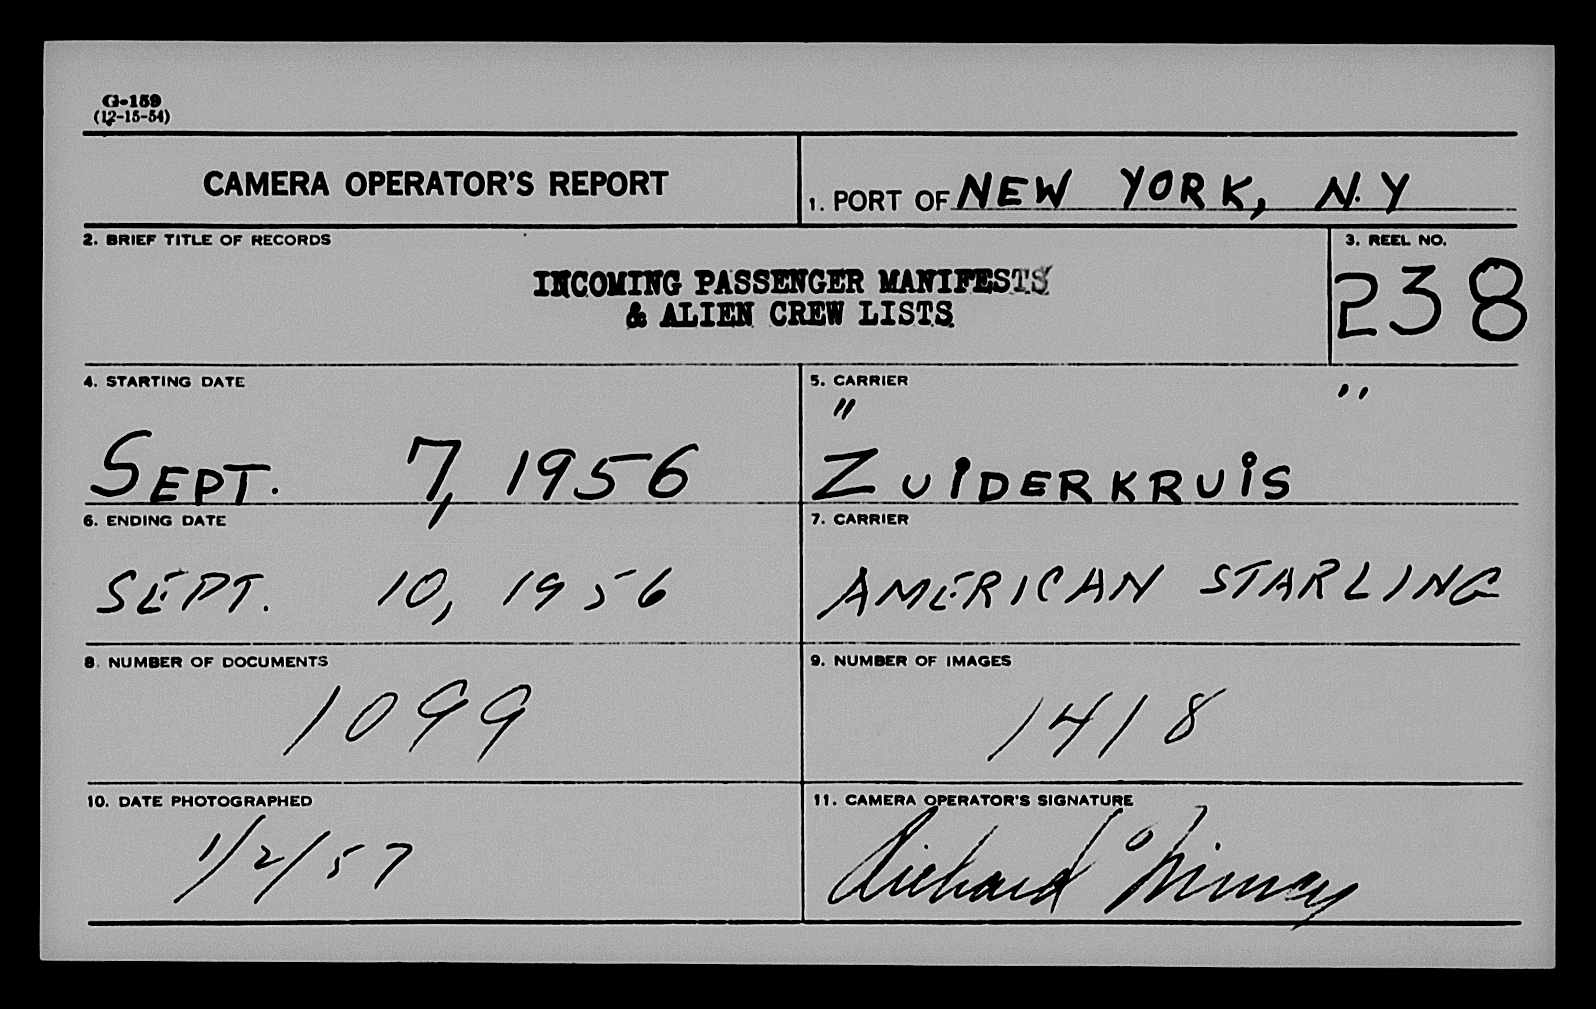 G-159
(12-15-54)
CAMERA OPERATOR'S REPORT
1. PORT OF NEW YORK, N.Y
2. BRIEF TITLE OF RECORDS
INCOMING PASSENGER MANIFESTS
& ALIEN CREW LISTS
3. REEL NO.
238
4. STARTING DATE
SEPT. 7, 1956
5. CARRIER
" ZUIDERKRUIS "
6. ENDING DATE
SEPT. 10, 1956
7. CARRIER
AMERICAN STARLING
8. NUMBER OF DOCUMENTS
1099
9. NUMBER OF IMAGES
1418
10. DATE PHOTOGRAPHED
1/2/57
11. CAMERA OPERATOR'S SIGNATURE
Richard